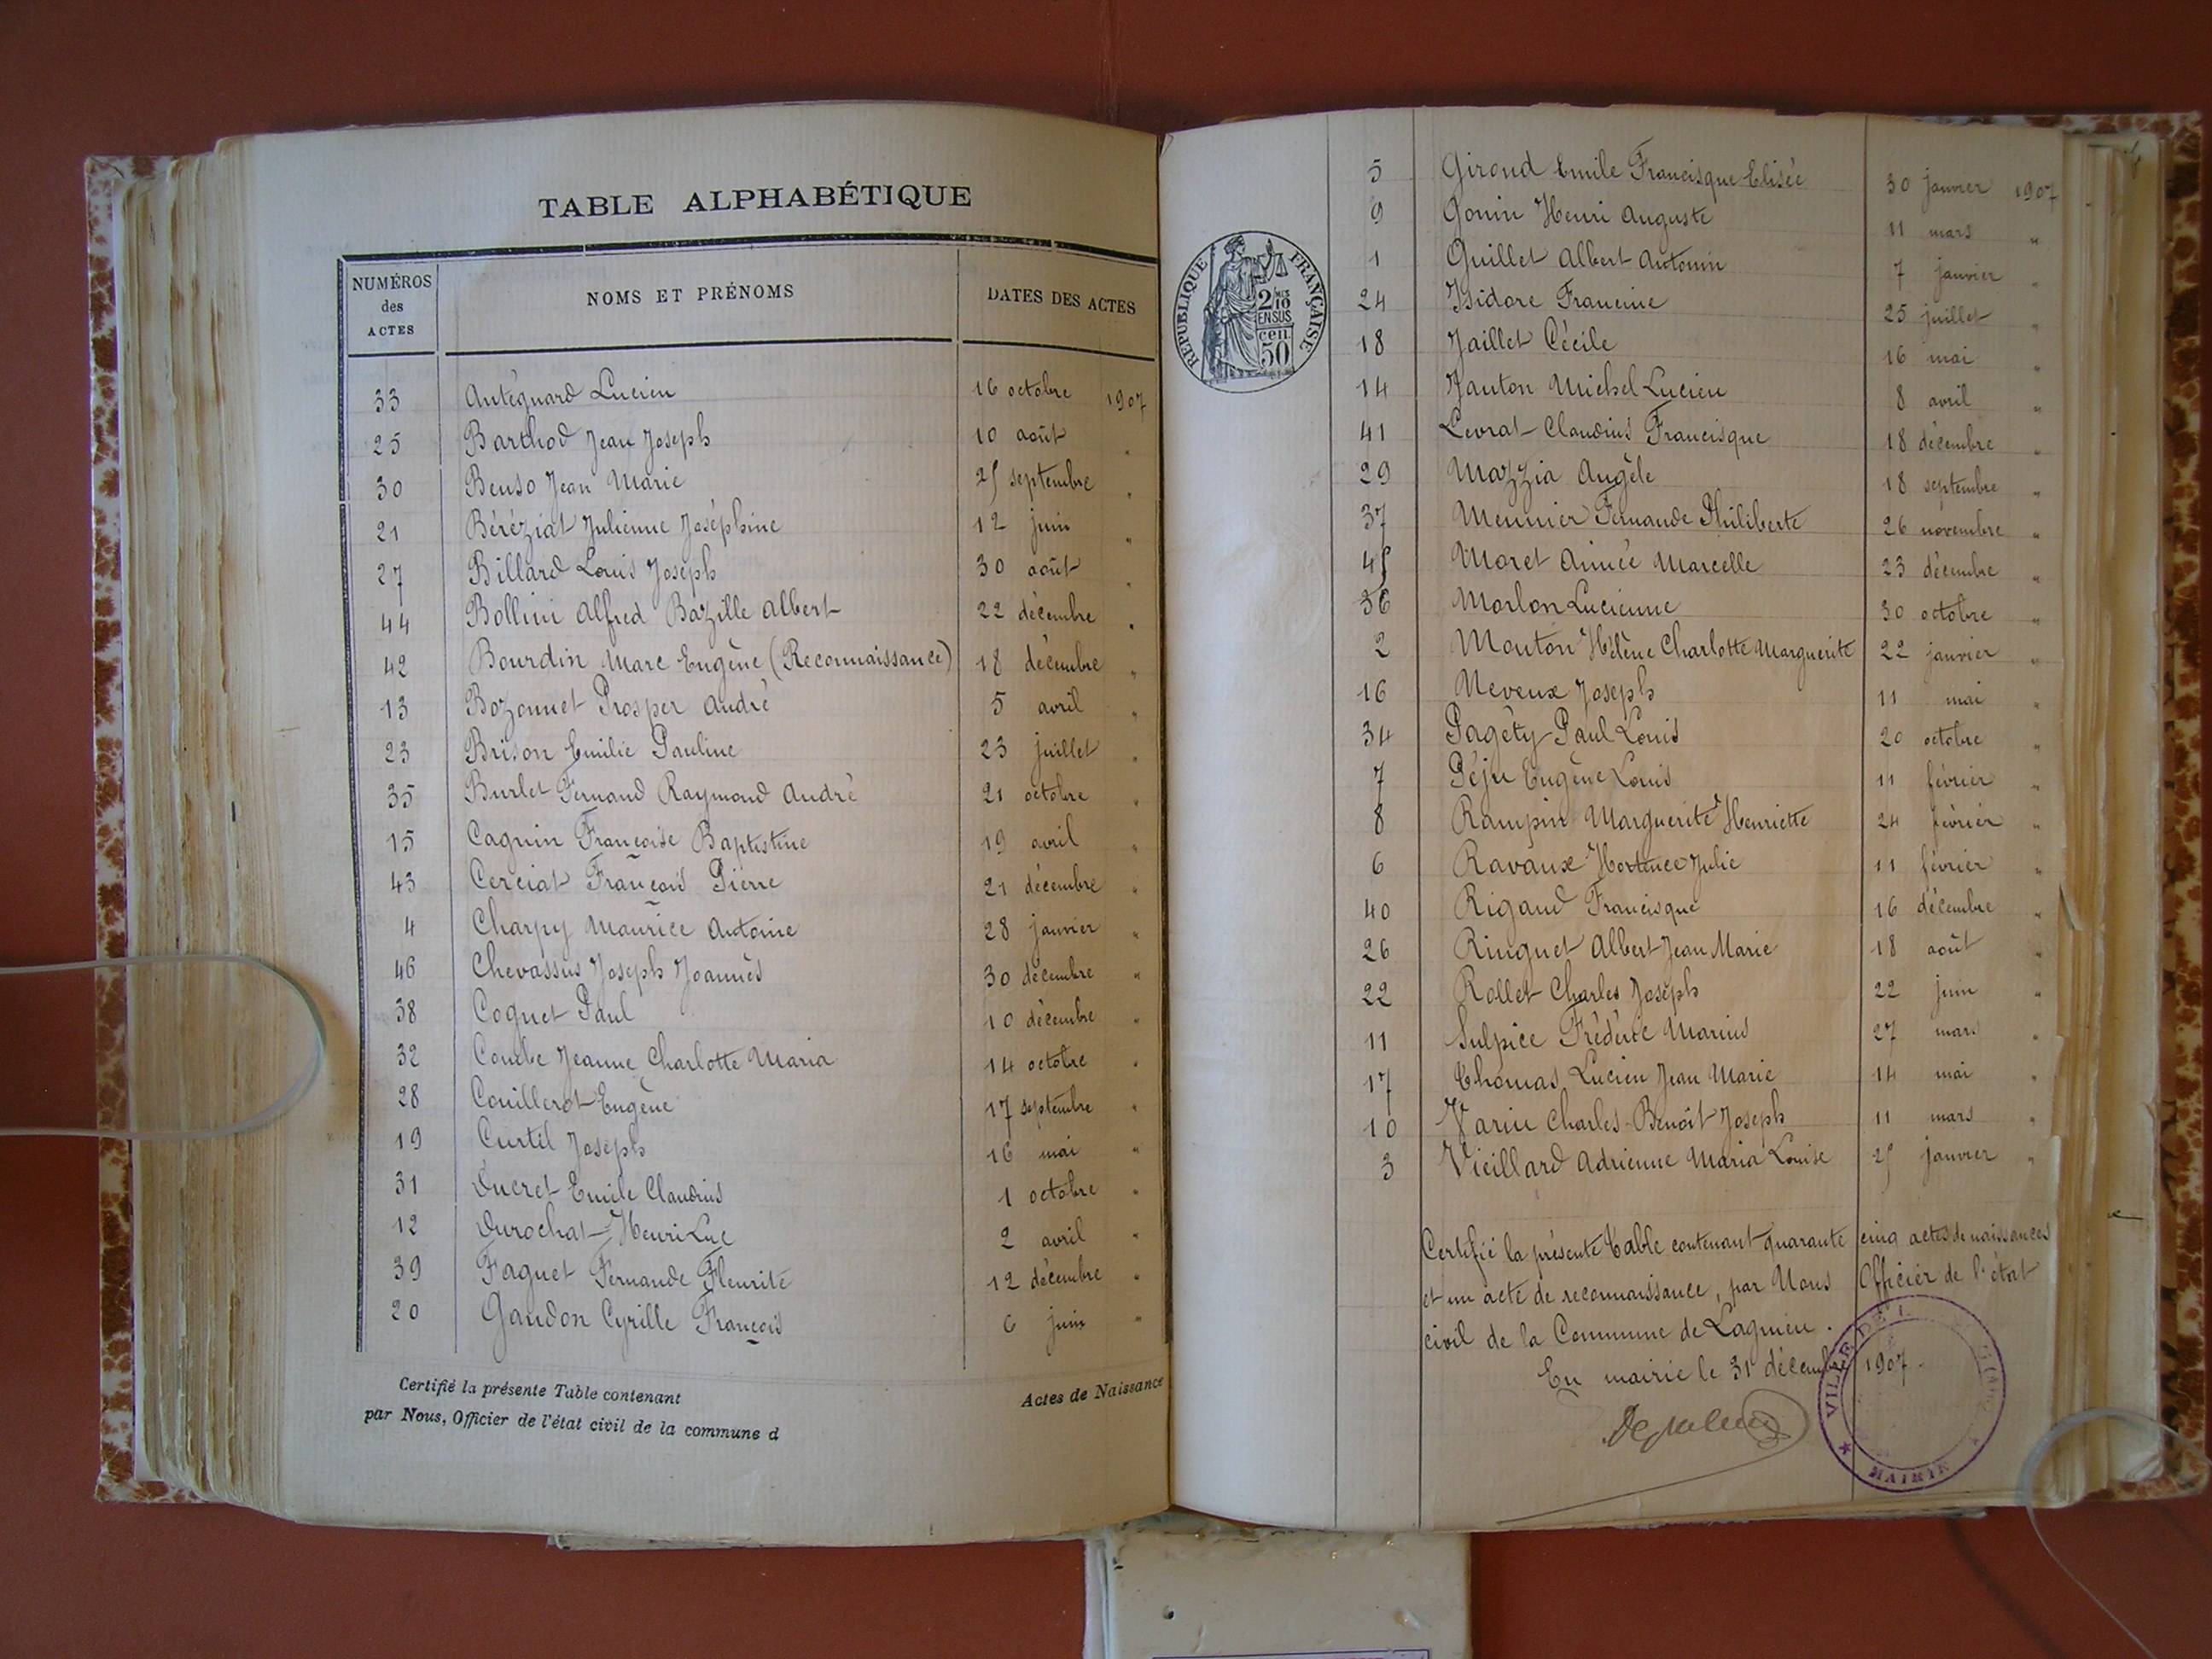 TABLE ALPHABÉTIQUE
NUMÉROS des ACTES NOMS ET PRÉNOMS DATES DES ACTES
33 Antégnard Lucien 16 octobre 1907
25 Barthod Jean Joseph 10 août "
30 Benso Jean Marie 25 septembre "
21 Béréziat Julienne Joséphine 12 juin "
27 Billard Louis Joseph 30 août "
44 Bollini Alfred Bazille Albert 22 décembre "
42 Bourdin Marc Eugène (Reconnaissance) 18 décembre "
13 Bozonnet Prosper André 5 avril "
23 Brison Emilie Pauline 23 juillet "
35 Burlet Fernand Raymond André 21 octobre "
15 Cagnin Françoise Baptistine 19 avril "
43 Cerciat François Pierre 21 décembre "
4 Charpy Maurice Antoine 28 janvier "
46 Chevassus Joseph Joannès 30 décembre "
38 Coquet Paul 10 décembre "
32 Combe Jeanne Charlotte Maria 14 octobre "
28 Couillerot Eugène 17 septembre "
19 Curtil Joseph 16 mai "
31 Ducret Emile Claudius 1 octobre "
12 Durochat Henri Luc 2 avril "
39 Faguet Fernande Fleurite 12 décembre "
20 Gaudon Cyrille François 6 juin "
Certifié la présente Table contenant Actes de Naissance
par Nous, Officier de l'état civil de la commune d
RÉPUBLIQUE FRANÇAISE
2/10
EN SUS
cen.
50
5 Giroud Emile Francisque Elisée 30 janvier 1907
9 Gonin Henri Auguste 11 mars "
1 Guillet Albert Antonin 7 janvier "
24 Isidore Francine 25 juillet "
18 Jaillet Cécile 16 mai "
14 Janton Michel Lucien 8 avril "
41 Levrat Claudius Francisque 18 décembre "
29 Mazzia Angèle 18 septembre "
37 Meunier Fernande Philiberte 26 novembre "
45 Moret Aimée Marcelle 23 décembre "
36 Morlon Lucienne 30 octobre "
2 Mouton Hélène Charlotte Marguerite 22 janvier "
16 Neveux Joseph 11 mai "
34 Pagéty Paul Louis 20 octobre "
7 Péju Eugène Louis 11 février "
8 Rampin Marguerite Henriette 24 février "
6 Ravaux Hortence Julie 11 février "
40 Rigaud Francisque 16 décembre "
26 Ringuet Albert Jean Marie 18 août "
22 Rollet Charles Joseph 22 juin "
11 Sulpice Frédéric Marius 27 mars "
17 Thomas Lucien Jean Marie 14 mai "
10 Varin Charles Benoît Joseph 11 mars "
3 Vieillard Adrienne Maria Louise 25 janvier "
Certifié la présente Table contenant quarante cinq actes de naissances
et un acte de reconnaissance, par Nous Officier de l'état
civil de la Commune de Lagnieu.
En mairie le 31 décembre 1907.
VILLE DE
MAIRIE